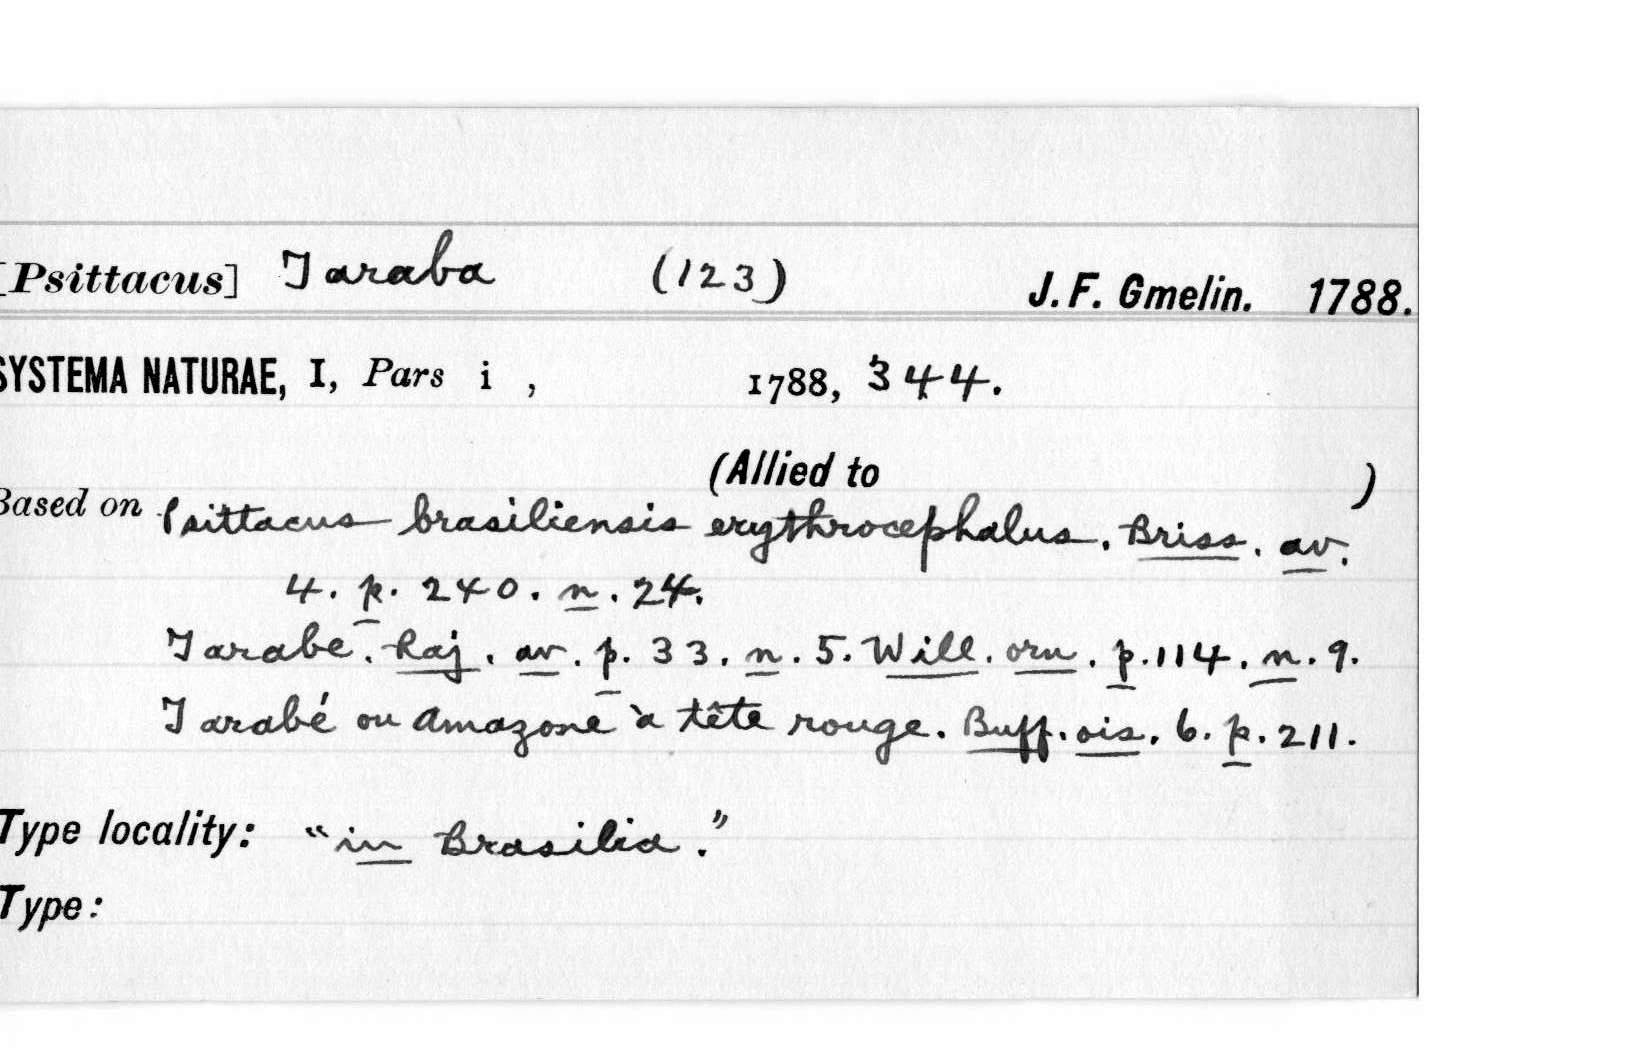 [Psittacus] Taraba (123) J. F. Gmelin. 1788.
SYSTEMA NATURAE, I, Pars i , 1788, 344.
(Allied to )
Based on Psittacus brasiliensis erythrocephalus. Briss. av.
4. p. 240. n. 24.
Tarabe. Raj. av. p. 33. n. 5. Will. orn. p. 114. n. 9.
Tarabé ou Amazone à tête rouge. Buff. ois. 6. p. 211.
Type locality: "in Brasilia."
Type: